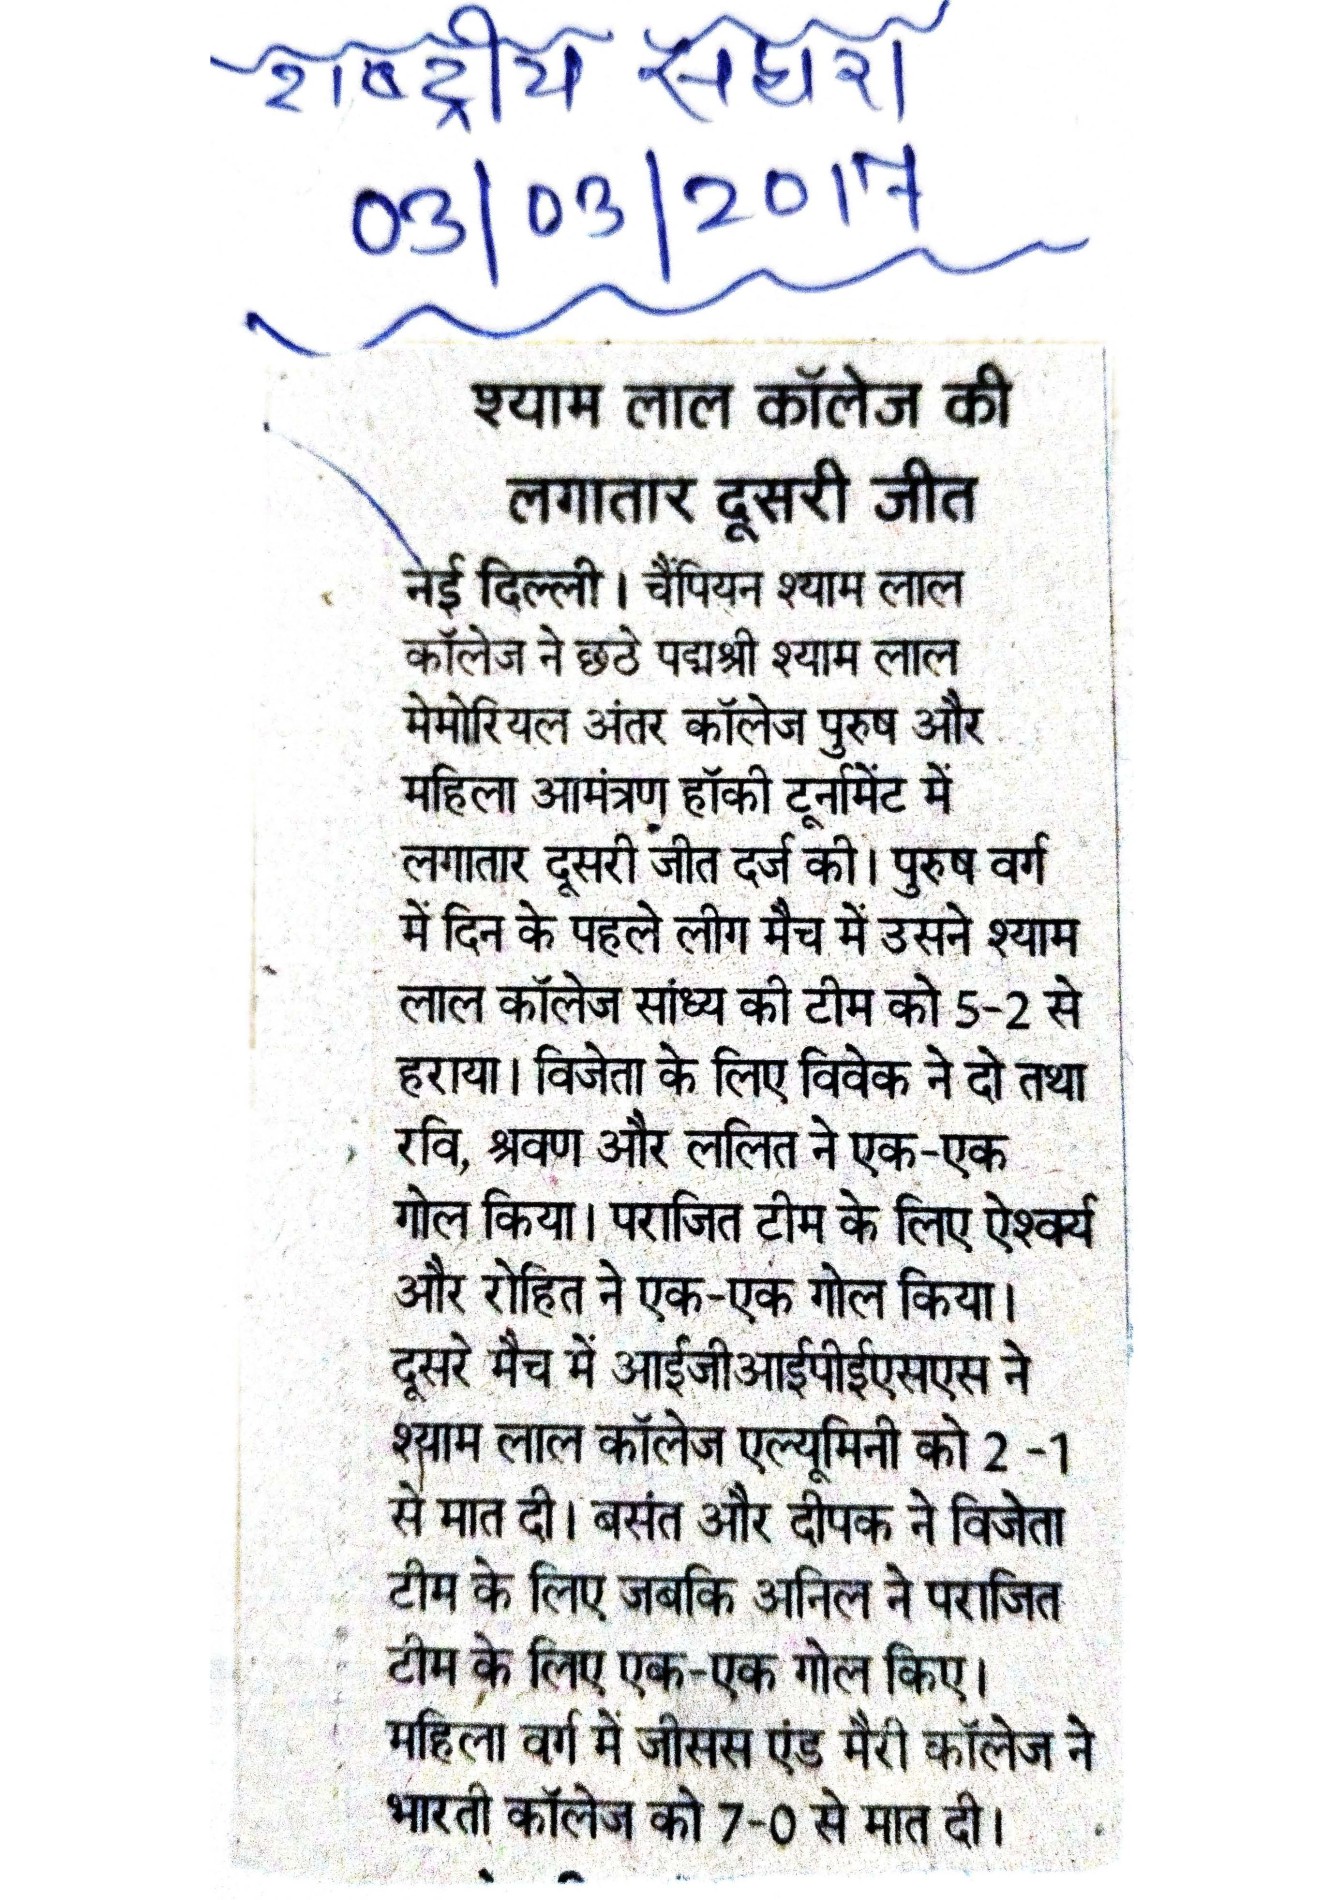 राष्ट्रीय सहारा
03/03/2017
श्याम लाल कॉलेज की
लगातार दूसरी जीत
नई दिल्ली। चैंपियन श्याम लाल
कॉलेज ने छठे पद्मश्री श्याम लाल
मेमोरियल अंतर कॉलेज पुरुष और
महिला आमंत्रण हॉकी टूर्नामेंट में
लगातार दूसरी जीत दर्ज की। पुरुष वर्ग
में दिन के पहले लीग मैच में उसने श्याम
लाल कॉलेज सांध्य की टीम को 5-2 से
हराया। विजेता के लिए विवेक ने दो तथा
रवि, श्रवण और ललित ने एक-एक
गोल किया। पराजित टीम के लिए ऐश्वर्य
और रोहित ने एक-एक गोल किया।
दूसरे मैच में आईजीआईपीईएसएस ने
श्याम लाल कॉलेज एल्यूमिनी को 2 -1
से मात दी। बसंत और दीपक ने विजेता
टीम के लिए जबकि अनिल ने पराजित
टीम के लिए एक-एक गोल किए।
महिला वर्ग में जीसस एंड मैरी कॉलेज ने
भारती कॉलेज को 7-0 से मात दी।